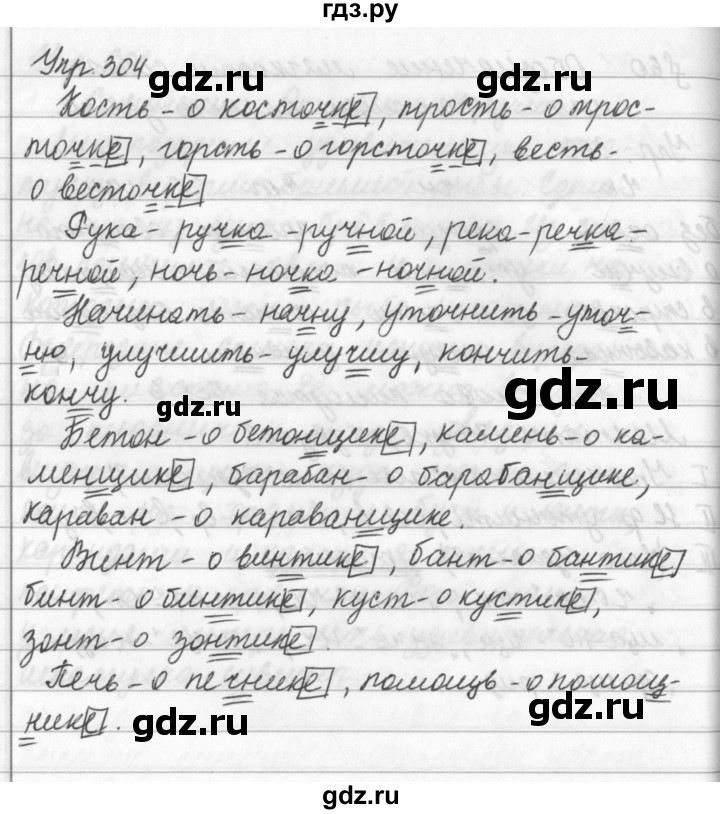 гдз.ру
Упр. 304
gdz.ru
gdz.ru
Кость - о косточке, трость - о трос-
точке, горсть - о горсточке, весть -
о весточке
gdz.ru
Рука - ручка - ручной, река - речка -
речной, ночь - ночка - ночной.
gdz.ru
gdz.ru
Начинать - начну, уточнить - уточ-
ню, улучшить - улучшу, кончить -
кончу.
gdz.ru
gdz.ru
Бетон - о бетонщике, камень - о ка-
менщике, барабан - о барабанщике,
караван - о караванщике.
gdz.ru
gdz.ru
Винт - о винтике, бант - о бантике
бинт - о бинтике, куст - о кустике,
зонт - о зонтике.
gdz.ru
gdz.ru
Печь - о печнике, помощь - о помощ-
нике.
gdz.ru
gdz.ru
gdz.ru